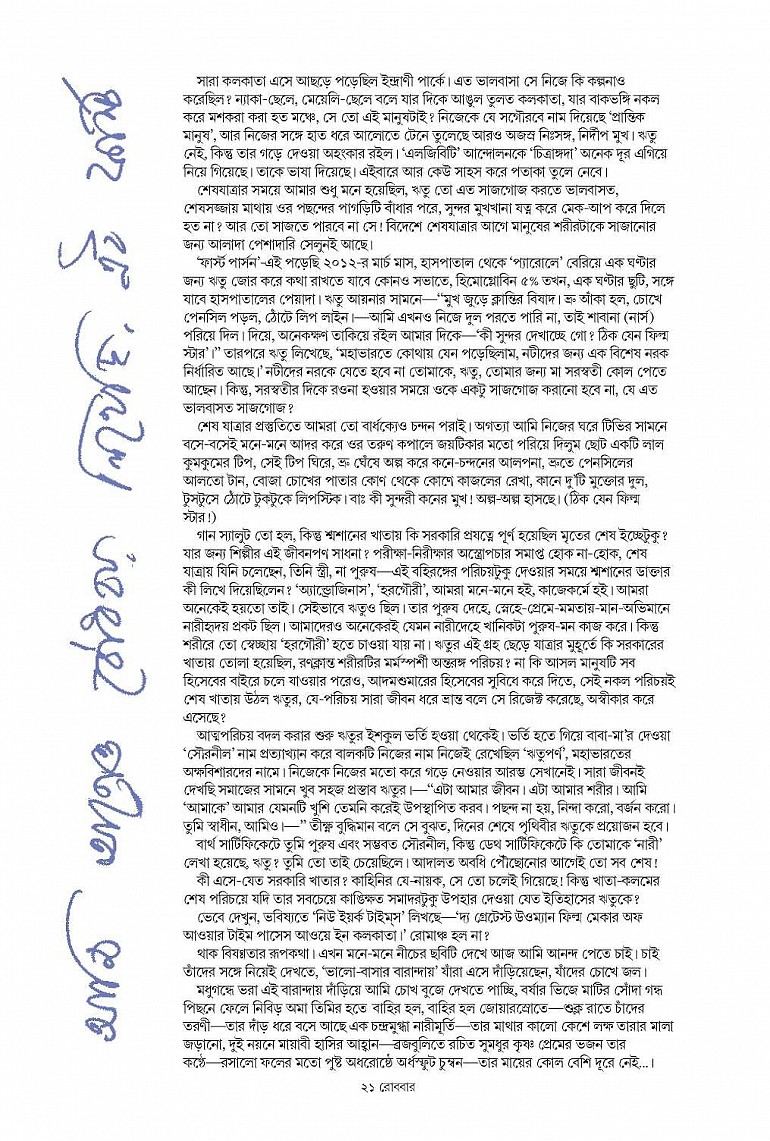 সারা কলকাতা এসে আছড়ে পড়েছিল ইন্দ্রাণী পার্কে। এত ভালবাসা সে নিজে কি কল্পনাও
করেছিল? ন্যাকা-ছেলে, মেয়েলি-ছেলে বলে যার দিকে আঙুল তুলত কলকাতা, যার বাকভঙ্গি নকল
করে মশকরা করা হত মঞ্চে, সে তো এই মানুষটাই? নিজেকে যে সগৌরবে নাম দিয়েছে ‘প্রান্তিক
মানুষ’, আর নিজের সঙ্গে হাত ধরে আলোতে টেনে তুলেছে আরও অজস্র নিঃসঙ্গ, নির্দীপ মুখ। ঋতু
নেই, কিন্তু তার গড়ে দেওয়া অহংকার রইল। ‘এলজিবিটি’ আন্দোলনকে ‘চিত্রাঙ্গদা’ অনেক দূর এগিয়ে
নিয়ে গিয়েছে। তাকে ভাষা দিয়েছে। এইবারে আর কেউ সাহস করে পতাকা তুলে নেবে।
শেষযাত্রার সময়ে আমার শুধু মনে হয়েছিল, ঋতু তো এত সাজগোজ করতে ভালবাসত,
শেষসজ্জায় মাথায় ওর পছন্দের পাগড়িটি বাঁধার পরে, সুন্দর মুখখানা যত্ন করে মেক-আপ করে দিলে
হত না? আর তো সাজতে পারবে না সে! বিদেশে শেষযাত্রার আগে মানুষের শরীরটাকে সাজানোর
জন্য আলাদা পেশাদারি সেলুনই আছে।
‘ফার্স্ট পার্সন’-এই পড়েছি ২০১২-র মার্চ মাস, হাসপাতাল থেকে ‘প্যারোলে’ বেরিয়ে এক ঘণ্টার
জন্য ঋতু জোর করে কথা রাখতে যাবে কোনও সভাতে, হিমোগ্লোবিন ৫% তখন, এক ঘণ্টার ছুটি, সঙ্গে
যাবে হাসপাতালের পেয়াদা। ঋতু আয়নার সামনে—“মুখ জুড়ে ক্লান্তির বিষাদ। ভ্রূ আঁকা হল, চোখে
পেনসিল পড়ল, ঠোঁটে লিপ লাইন।—আমি এখনও নিজে দুল পরতে পারি না, তাই শাবানা (নার্স)
পরিয়ে দিল। দিয়ে, অনেকক্ষণ তাকিয়ে রইল আমার দিকে—‘কী সুন্দর দেখাচ্ছে গো? ঠিক যেন ফিল্ম
স্টার’।” তারপরে ঋতু লিখেছে, ‘মহাভারতে কোথায় যেন পড়েছিলাম, নটীদের জন্য এক বিশেষ নরক
নির্ধারিত আছে।’ নটীদের নরকে যেতে হবে না তোমাকে, ঋতু, তোমার জন্য মা সরস্বতী কোল পেতে
আছেন। কিন্তু, সরস্বতীর দিকে রওনা হওয়ার সময়ে ওকে একটু সাজগোজ করানো হবে না, যে এত
ভালবাসত সাজগোজ?
শেষ যাত্রার প্রস্তুতিতে আমরা তো বার্ধক্যেও চন্দন পরাই। অগত্যা আমি নিজের ঘরে টিভির সামনে
বসে-বসেই মনে-মনে আদর করে ওর তরুণ কপালে জয়টিকার মতো পরিয়ে দিলুম ছোট একটি লাল
কুমকুমের টিপ, সেই টিপ ঘিরে, ভ্রূ ঘেঁষে অল্প করে কনে-চন্দনের আলপনা, ভ্রূতে পেনসিলের
আলতো টান, বোজা চোখের পাতার কোণ থেকে কোণে কাজলের রেখা, কানে দু’টি মুক্তোর দুল,
টুসটুসে ঠোঁটে টুকটুকে লিপস্টিক। বাঃ কী সুন্দরী কনের মুখ! অল্প-অল্প হাসছে। (ঠিক যেন ফিল্ম
স্টার!)
গান স্যালুট তো হল, কিন্তু শ্মশানের খাতায় কি সরকারি প্রযত্নে পূর্ণ হয়েছিল মৃতের শেষ ইচ্ছেটুকু?
যার জন্য শিল্পীর এই জীবনপণ সাধনা? পরীক্ষা-নিরীক্ষার অস্ত্রোপচার সমাপ্ত হোক না-হোক, শেষ
যাত্রায় যিনি চলেছেন, তিনি স্ত্রী, না পুরুষ—এই বহিরঙ্গের পরিচয়টুকু দেওয়ার সময়ে শ্মশানের ডাক্তার
কী লিখে দিয়েছিলেন? ‘অ্যান্ড্রোজিনাস’, ‘হরগৌরী’, আমরা মনে-মনে হই, কাজেকর্মে হই। আমরা
অনেকেই হয়তো তাই। সেইভাবে ঋতুও ছিল। তার পুরুষ দেহে, স্নেহে-প্রেমে-মমতায়-মান-অভিমানে
নারীহৃদয় প্রকট ছিল। আমাদেরও অনেকেরই যেমন নারীদেহে খানিকটা পুরুষ-মন কাজ করে। কিন্তু
শরীরে তো স্বেচ্ছায় ‘হরগৌরী’ হতে চাওয়া যায় না। ঋতুর এই গ্রহ ছেড়ে যাত্রার মুহূর্তে কি সরকারের
খাতায় তোলা হয়েছিল, রণক্লান্ত শরীরটির মর্মস্পর্শী অন্তরঙ্গ পরিচয়? না কি আসল মানুষটি সব
হিসেবের বাইরে চলে যাওয়ার পরেও, আদমশুমারের হিসেবের সুবিধে করে দিতে, সেই নকল পরিচয়ই
শেষ খাতায় উঠল ঋতুর, যে-পরিচয় সারা জীবন ধরে ভ্রান্ত বলে সে রিজেক্ট করেছে, অস্বীকার করে
এসেছে?
আত্মপরিচয় বদল করার শুরু ঋতুর ইশকুল ভর্তি হওয়া থেকেই। ভর্তি হতে গিয়ে বাবা-মা’র দেওয়া
‘সৌরনীল’ নাম প্রত্যাখ্যান করে বালকটি নিজের নাম নিজেই রেখেছিল ‘ঋতুপর্ণ’, মহাভারতের
অক্ষবিশারদের নামে। নিজেকে নিজের মতো করে গড়ে নেওয়ার আরম্ভ সেখানেই। সারা জীবনই
দেখছি সমাজের সামনে খুব সহজ প্রস্তাব ঋতুর।—“এটা আমার জীবন। এটা আমার শরীর। আমি
‘আমাকে’ আমার যেমনটি খুশি তেমনি করেই উপস্থাপিত করব। পছন্দ না হয়, নিন্দা করো, বর্জন করো।
তুমি স্বাধীন, আমিও।—” তীক্ষ্ণ বুদ্ধিমান বলে সে বুঝত, দিনের শেষে পৃথিবীর ঋতুকে প্রয়োজন হবে।
বার্থ সার্টিফিকেটে তুমি পুরুষ এবং সম্ভবত সৌরনীল, কিন্তু ডেথ সার্টিফিকেটে কি তোমাকে ‘নারী’
লেখা হয়েছে, ঋতু? তুমি তো তাই চেয়েছিলে। আদালত অবধি পৌঁছোনোর আগেই তো সব শেষ!
কী এসে-যেত সরকারি খাতার? কাহিনির যে-নায়ক, সে তো চলেই গিয়েছে! কিন্তু খাতা-কলমের
শেষ পরিচয়ে যদি তার সবচেয়ে কাঙ্ক্ষিত সমাদরটুকু উপহার দেওয়া যেত ইতিহাসের ঋতুকে?
ভেবে দেখুন, ভবিষ্যতে ‘নিউ ইয়র্ক টাইম্‌স’ লিখছে—‘দ্য গ্রেটেস্ট উওম্যান ফিল্ম মেকার অফ
আওয়ার টাইম পাসেস আওয়ে ইন কলকাতা।’ রোমাঞ্চ হল না?
থাক বিষণ্ণতার রূপকথা। এখন মনে-মনে নীচের ছবিটি দেখে আজ আমি আনন্দ পেতে চাই। চাই
তাঁদের সঙ্গে নিয়েই দেখতে, ‘ভালো-বাসার বারান্দায়’ যাঁরা এসে দাঁড়িয়েছেন, যাঁদের চোখে জল।
মধুগন্ধে ভরা এই বারান্দায় দাঁড়িয়ে আমি চোখ বুজে দেখতে পাচ্ছি, বর্ষার ভিজে মাটির সোঁদা গন্ধ
পিছনে ফেলে নিবিড় অমা তিমির হতে বাহির হল, বাহির হল জোয়ারস্রোতে—শুক্ল রাতে চাঁদের
তরণী—তার দাঁড় ধরে বসে আছে এক চন্দ্রমুগ্ধা নারীমূর্তি—তার মাথার কালো কেশে লক্ষ তারার মালা
জড়ানো, দুই নয়নে মায়াবী হাসির আহ্বান—ব্রজবুলিতে রচিত সুমধুর কৃষ্ণ প্রেমের ভজন তার
কণ্ঠে—রসালো ফলের মতো পুষ্ট অধরোষ্ঠে অর্ধস্ফুট চুম্বন—তার মায়ের কোল বেশি দূরে নেই...।
২১ রোববার